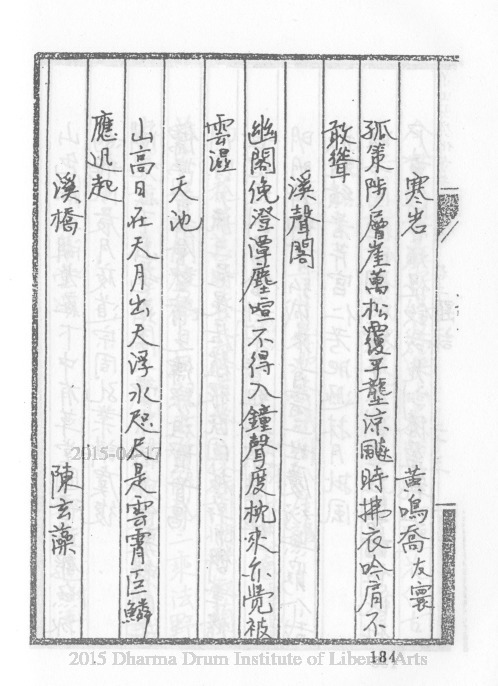 寒岩 黃鳴喬友寰
孤策陟層崖萬松覆平壑涼颸時拂衣吟肩不
敢聳
溪聲閣
幽閣俛澄潭塵喧不得入鐘聲度枕來亦覺被
雲濕
天池
山高日在天月出天浮水咫尺是雲霄巨鱗
應迅起
溪橋 陳玄藻
184
2015-04-17
2015 Dharma Drum Institute of Liberal Arts